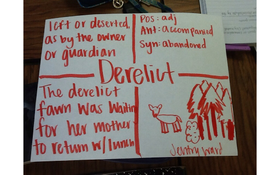 left or deserted
as by the owner
or guardian
Pos: adj
Ant: accompanied
Syn: abandoned
Derelict
The derelict
fawn was waiting
for her mother
to return w/lunch